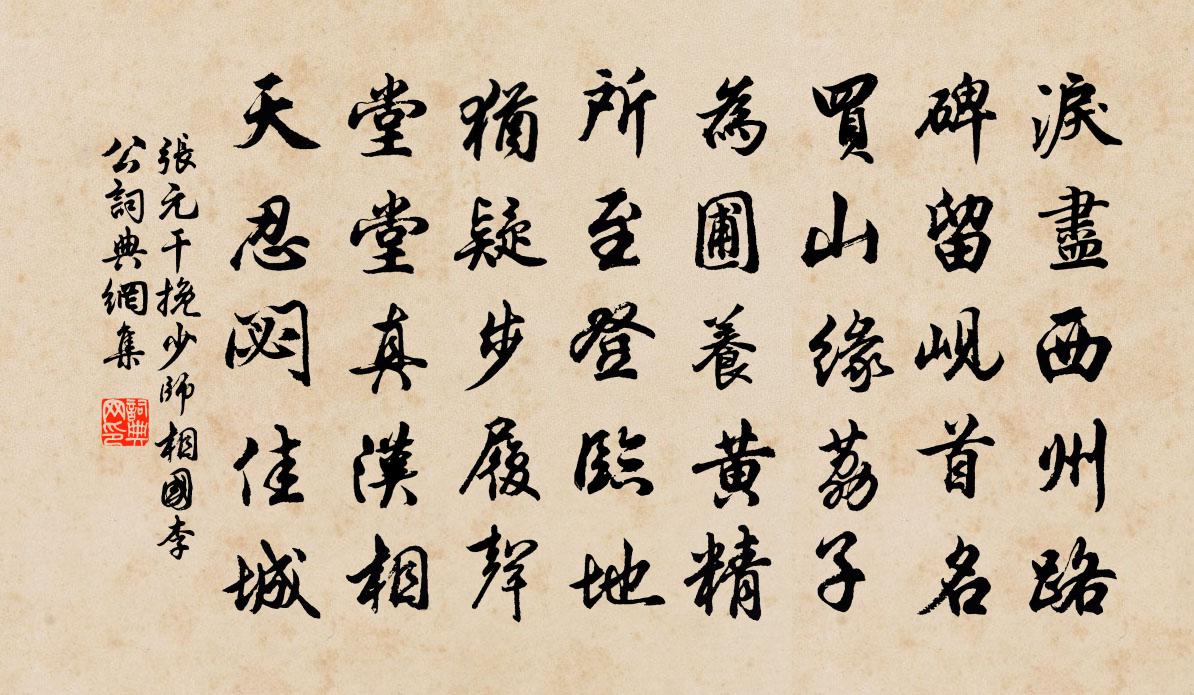 淚盡西州路
碑留峴首名
買山緣荔子
為圃養黃精
所至登臨地
猶疑步履聲
堂堂真漢相
天忍悶佳城
張元干挽少師相國李
公詞典網集
詞典
网印